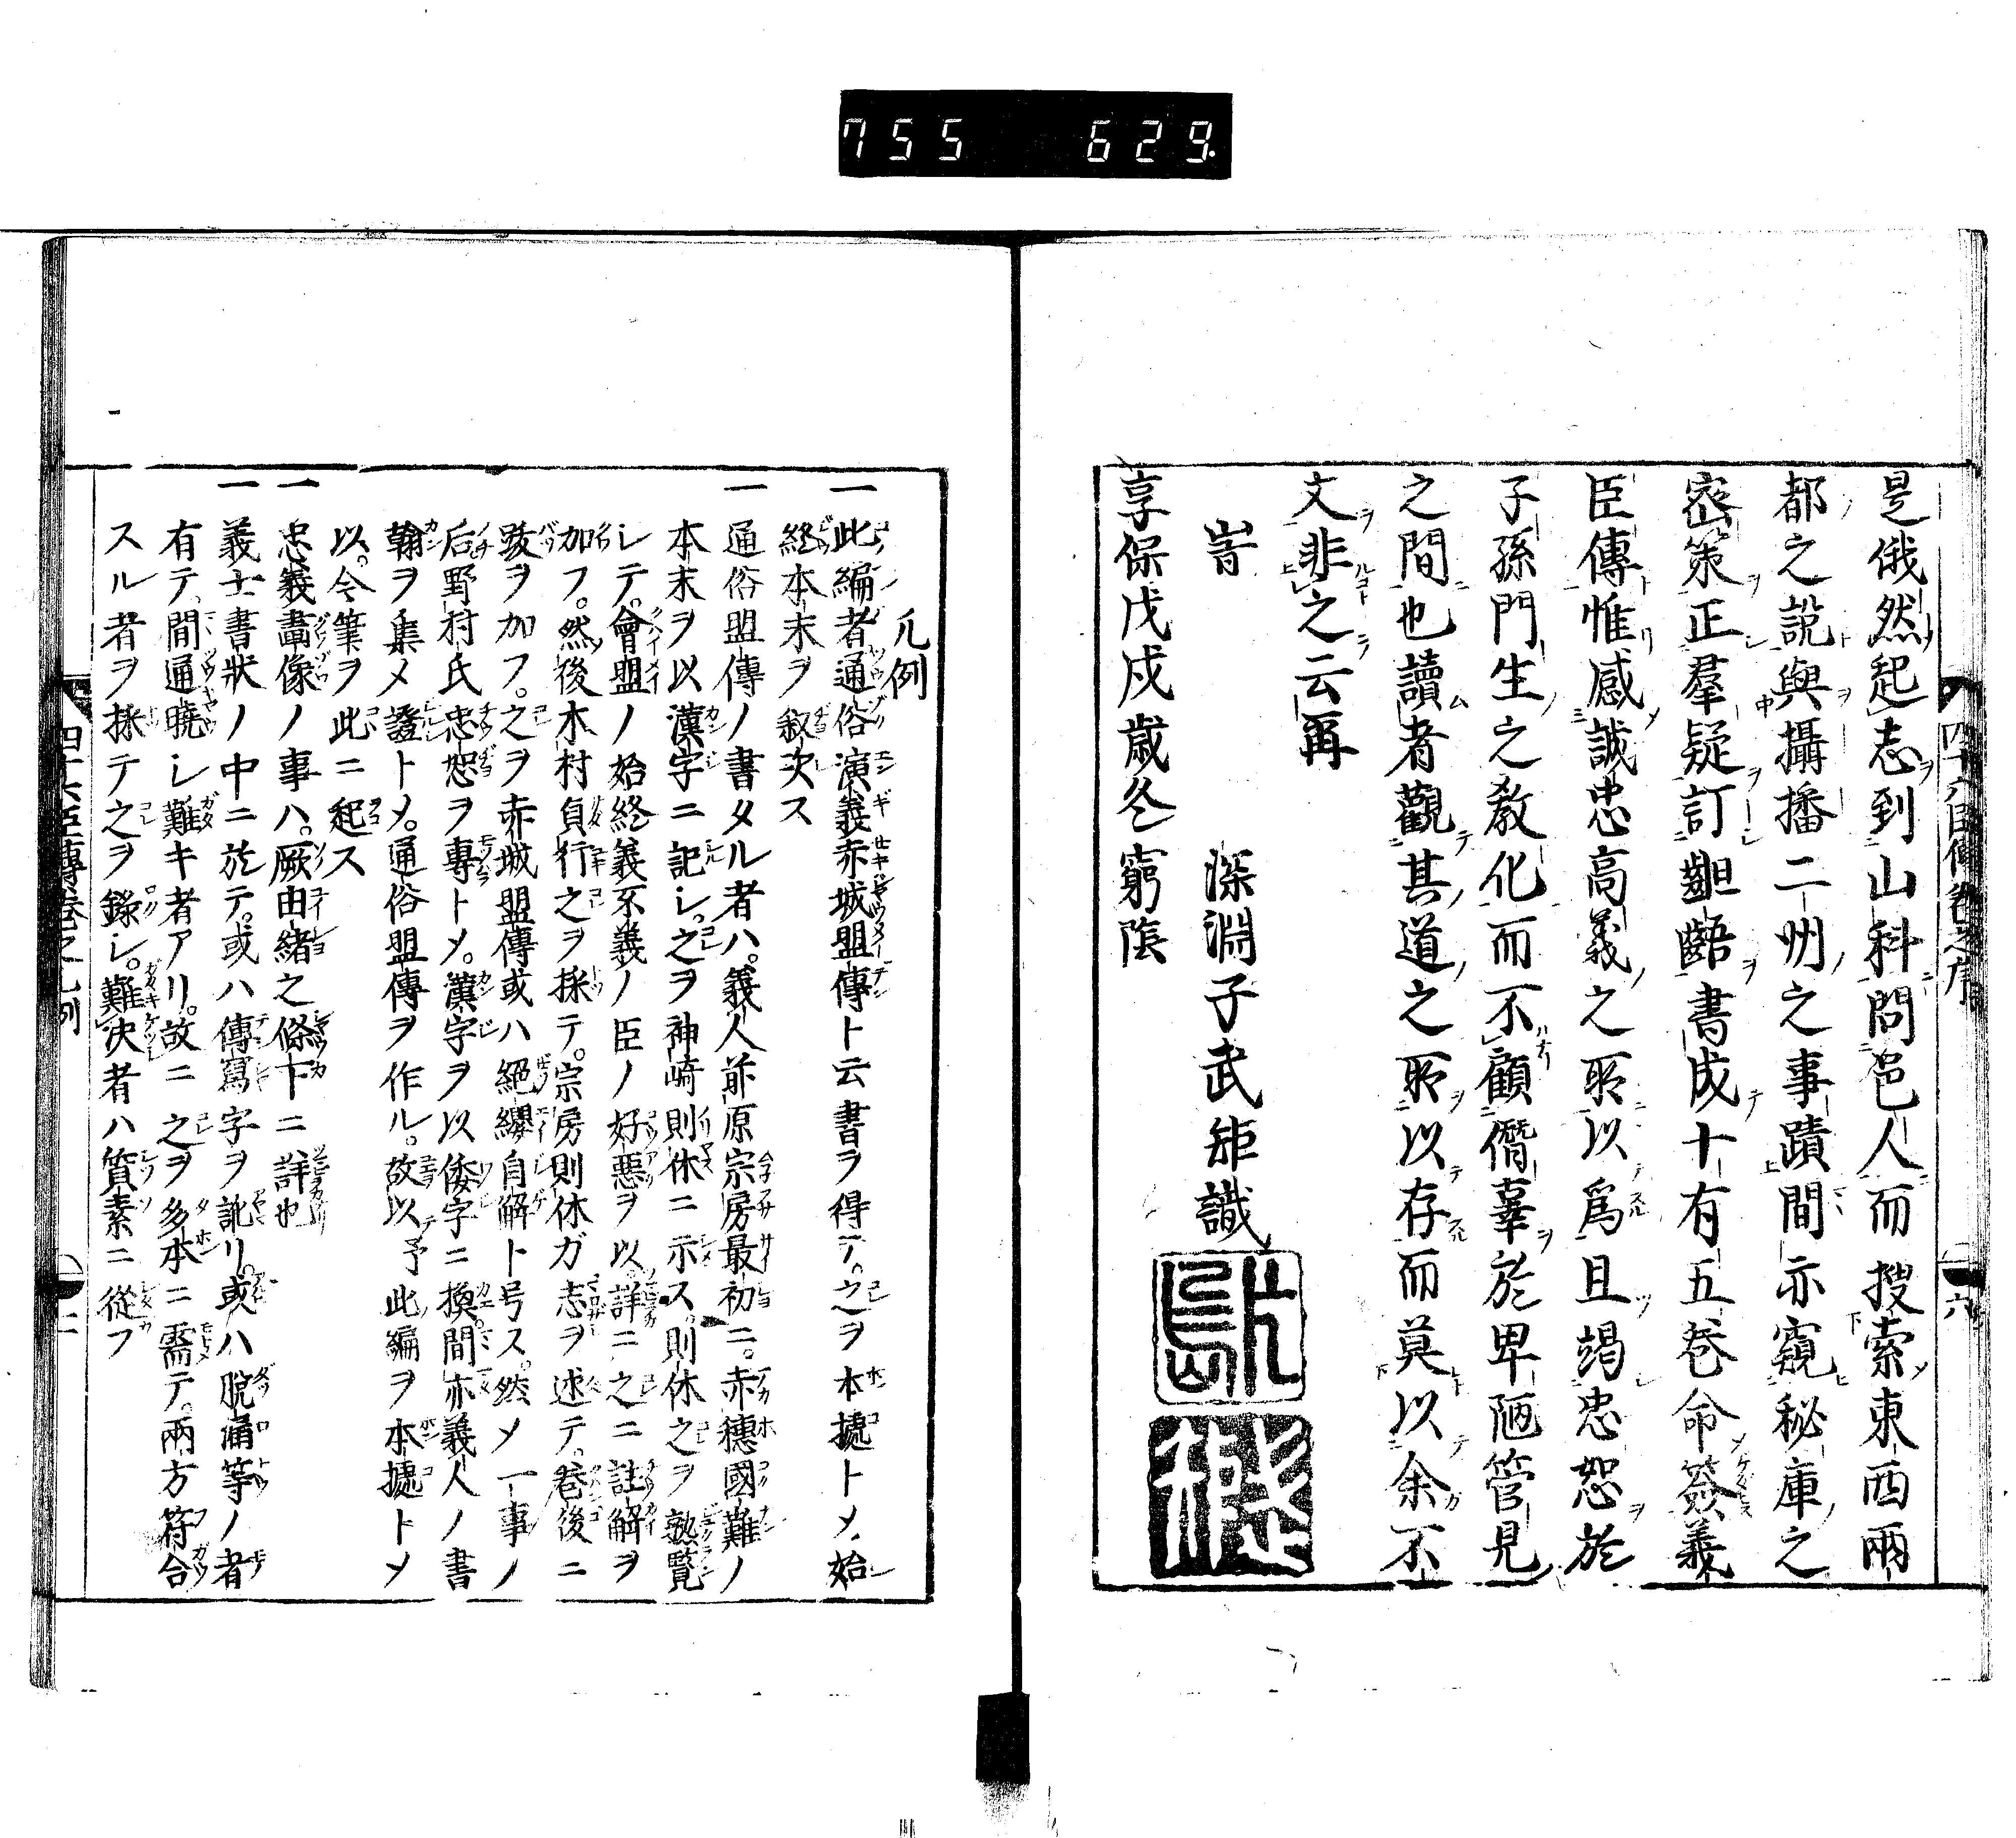 755 629.
四十六臣傳卷之序
六
是俄然起志到山科問邑人而搜索東西兩
都之說與攝播二州之事蹟間示窺秘庫之
密策正羣疑訂齟齬書成十有五卷命簽義
臣傳惟感誠忠高義之所以爲且竭忠恕於
子孫門生之教化而不顧僭辜於卑陋管見
之間也讀者觀其道之所以存而莫以余不
文非之云再
旹 深淵子武矩識
享保戊戌歲冬窮陰
凡例
一此編者通俗演義赤城盟傳ト云書ヲ得テ。之ヲ本據トメ始
終本末ヲ叙次ス
一通俗盟傳ノ書タル者ハ。義人前原宗房最初ニ。赤穗國難ノ
本末ヲ以漢字ニ記シ。之ヲ神崎則休ニ示ス。則休之ヲ熟覽
シテ。會盟ノ始終義不義ノ臣ノ好惡ヲ以。詳ニ之ニ註解ヲ
加フ。然後木村貞行之ヲ採テ。宗房則休ガ志ヲ述テ。卷後ニ
跋ヲ加フ。之ヲ赤城盟傳或ハ絕纓自解ト号ス。然メ一事ノ
后野村氏忠恕ヲ專トメ。漢字ヲ以倭字ニ換間亦義人ノ書
翰ヲ集メ證トメ。通俗盟傳ヲ作ル。故以予此編ヲ本據トメ
以。今筆ヲ此ニ起ス
一忠義畵像ノ事ハ。厥由緒之條下ニ詳也
一義士書狀ノ中ニ於テ。或ハ傳寫字ヲ訛リ。或ハ脫漏等ノ者
有テ。間通曉シ難キ者アリ。故ニ之ヲ多本ニ需テ。兩方符合
スル者ヲ採テ之ヲ錄シ。難決者ハ質素ニ從フ
四十六臣傳卷之凡例